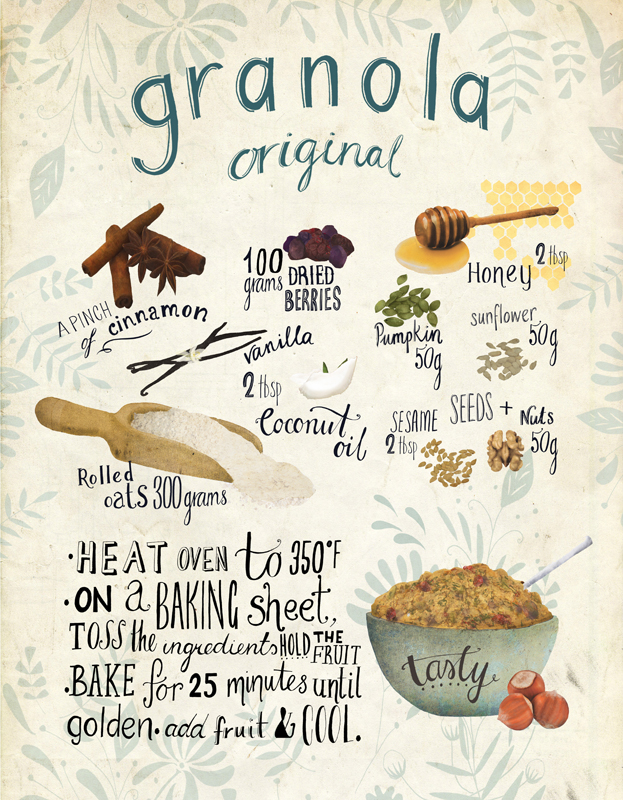 granola
original
A PINCH
of cinnamon
100
grams DRIED
BERRIES
2 tbsp
Honey
vanilla
Pumpkin
50g
sunflower
50g
2 tbsp
Coconut
oil
SESAME
2 tbsp
SEEDS + Nuts
50g
Rolled
oats 300 grams
·HEAT OVEN to 350°F
·ON a BAKING sheet,
TOSS the ingredients HOLD THE FRUIT
·BAKE for 25 minutes until
golden·add fruit & COOL.
tasty